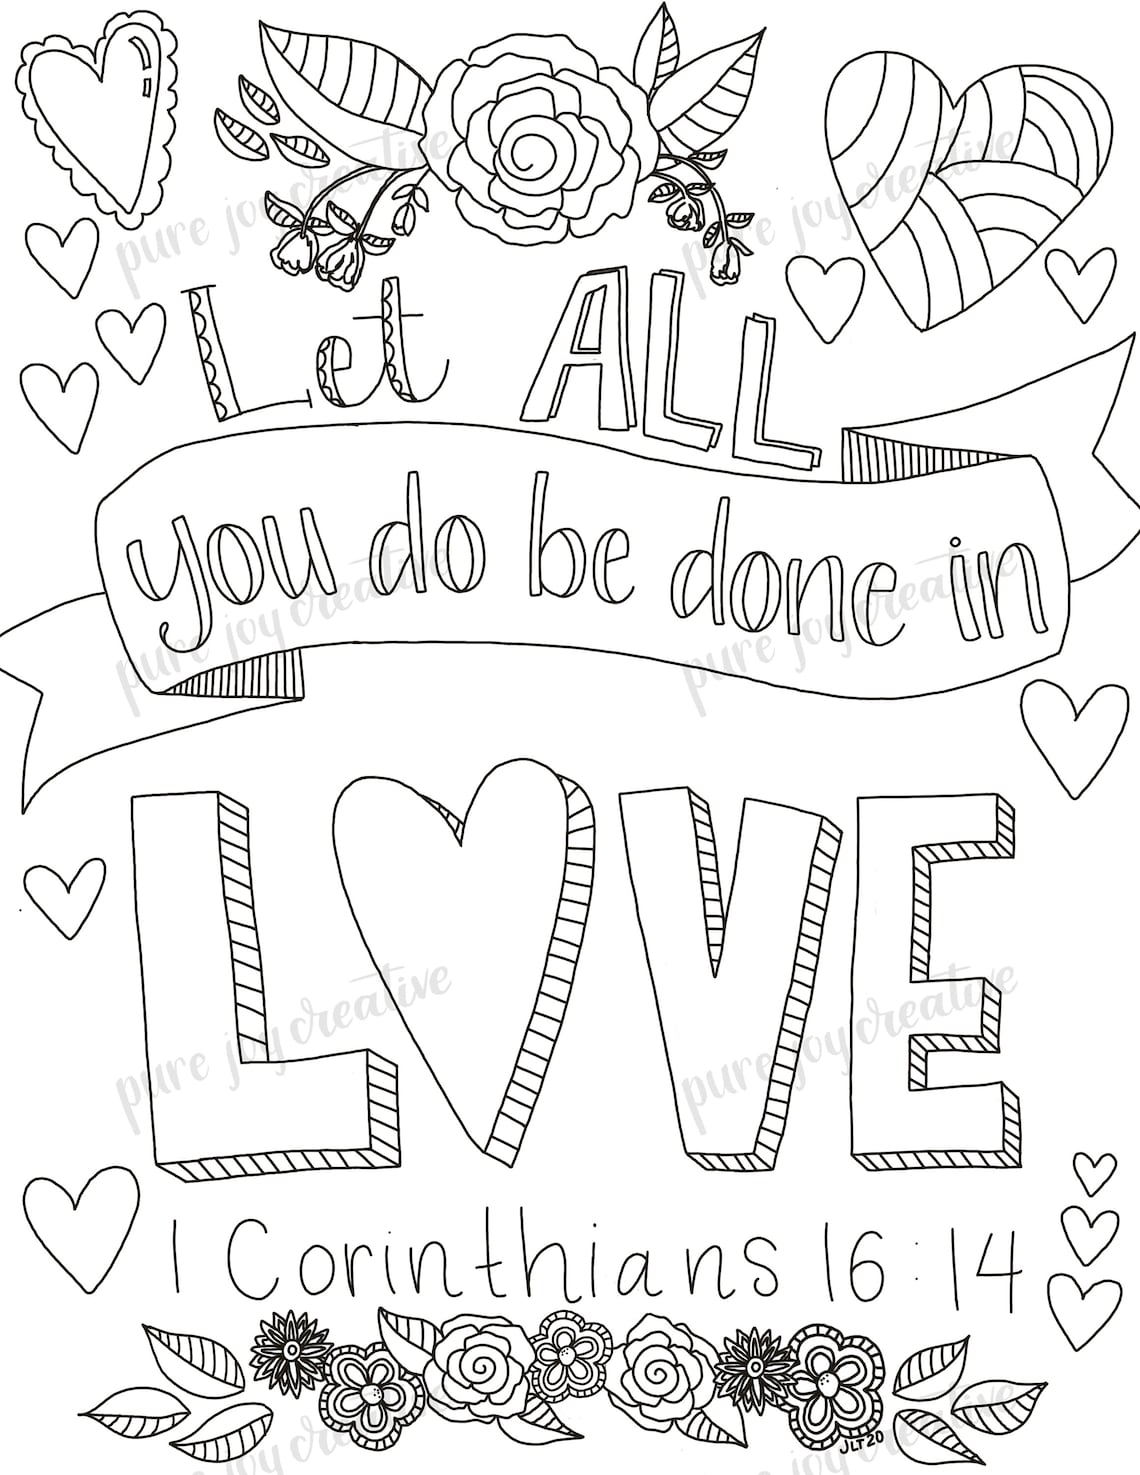 Let ALL
you do be done in
LOVE
1 Corinthians 16:14
JLT20
pure joy creative
pure joy creative
pure joy creative
pure joy creative
pure joy creative
pure joy creative
pure joy creative
pure joy creative